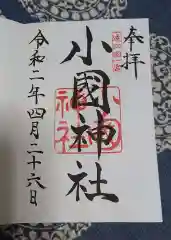 奉拝
小國神社
令和二年四月二十六日